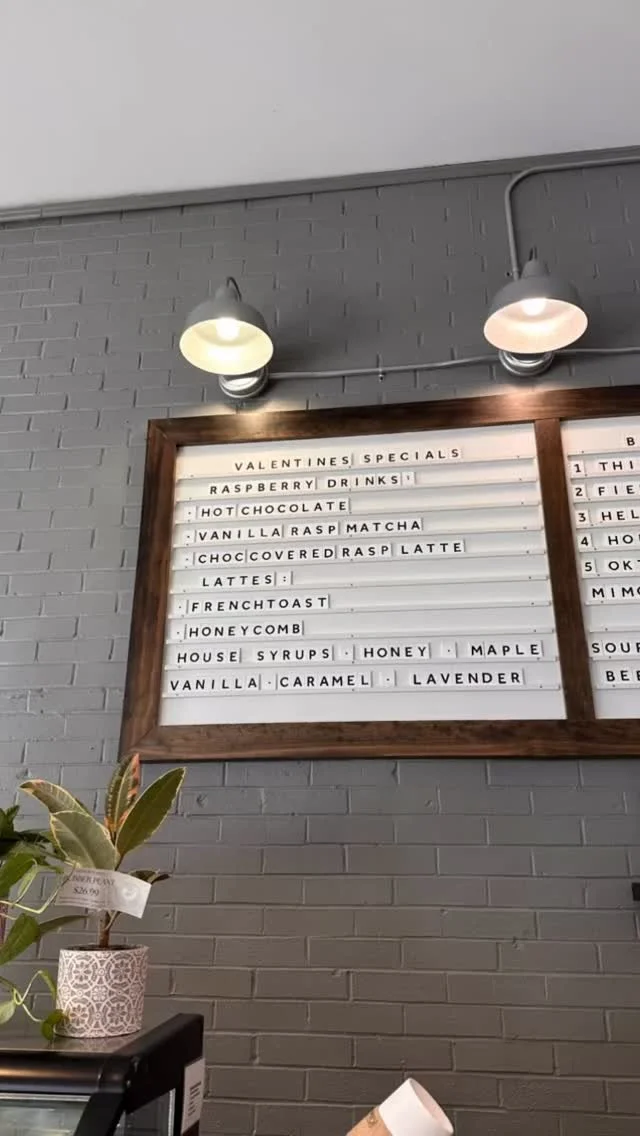 VALENTINES SPECIALS
RASPBERRY DRINKS:
· HOT CHOCOLATE
· VANILLA RASP MATCHA
· CHOC COVERED RASP LATTE
LATTES :
· FRENCHTOAST
· HONEYCOMB
HOUSE SYRUPS · HONEY · MAPLE
VANILLA · CARAMEL · LAVENDER
B
1 THI
2 FIE
3 HEL
4 HO
5 OK
MIMO
SOUP
BEE
PLANT
$26.99